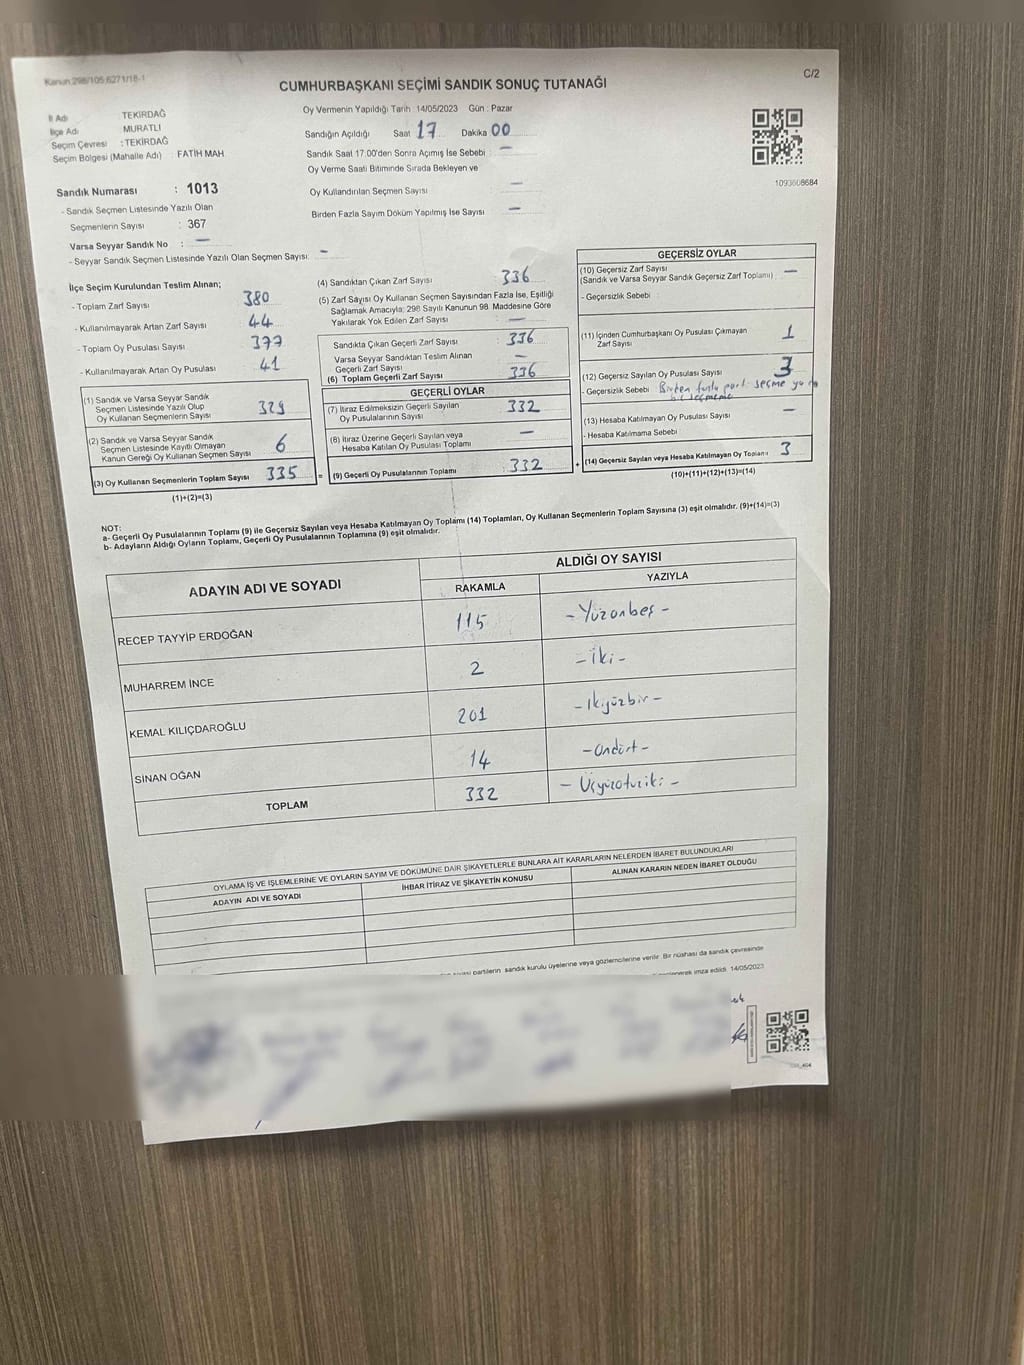 Kanun:298/105;6271/18-1
C/2
CUMHURBAŞKANI SEÇİMİ SANDIK SONUÇ TUTANAĞI
İl Adı TEKİRDAĞ
İlçe Adı MURATLI
Seçim Çevresi : TEKİRDAĞ
Seçim Bölgesi (Mahalle Adı) FATİH MAH
Oy Vermenin Yapıldığı Tarih :14/05/2023 Gün : Pazar
Sandığın Açıldığı Saat 17 Dakika 00
Sandık Saat 17.00'den Sonra Açılmış İse Sebebi : —
Oy Verme Saati Bitiminde Sırada Bekleyen ve
Oy Kullandırılan Seçmen Sayısı : —
Birden Fazla Sayım Döküm Yapılmış İse Sayısı —
1093608684
Sandık Numarası : 1013
- Sandık Seçmen Listesinde Yazılı Olan
Seçmenlerin Sayısı : 367
Varsa Seyyar Sandık No : —
- Seyyar Sandık Seçmen Listesinde Yazılı Olan Seçmen Sayısı: —
İlçe Seçim Kurulundan Teslim Alınan;
- Toplam Zarf Sayısı 380
- Kullanılmayarak Artan Zarf Sayısı 44
- Toplam Oy Pusulası Sayısı 377
- Kullanılmayarak Artan Oy Pusulası 41
(1) Sandık ve Varsa Seyyar Sandık
Seçmen Listesinde Yazılı Olup
Oy Kullanan Seçmenlerin Sayısı 329
(2) Sandık ve Varsa Seyyar Sandık
Seçmen Listesinde Kayıtlı Olmayan
Kanun Gereği Oy Kullanan Seçmen Sayısı 6
(3) Oy Kullanan Seçmenlerin Toplam Sayısı 335
(1)+(2)=(3)
(4) Sandıktan Çıkan Zarf Sayısı 336
(5) Zarf Sayısı Oy Kullanan Seçmen Sayısından Fazla İse, Eşitliği
Sağlamak Amacıyla; 298 Sayılı Kanunun 98. Maddesine Göre
Yakılarak Yok Edilen Zarf Sayısı : —
Sandıkta Çıkan Geçerli Zarf Sayısı : 336
Varsa Seyyar Sandıktan Teslim Alınan
Geçerli Zarf Sayısı —
(6) Toplam Geçerli Zarf Sayısı 336
GEÇERLİ OYLAR
(7) İtiraz Edilmeksizin Geçerli Sayılan
Oy Pusulalarının Sayısı 332
(8) İtiraz Üzerine Geçerli Sayılan veya
Hesaba Katılan Oy Pusulası Toplamı —
= (9) Geçerli Oy Pusulalarının Toplamı 332
GEÇERSİZ OYLAR
(10) Geçersiz Zarf Sayısı
(Sandık ve Varsa Seyyar Sandık Geçersiz Zarf Toplamı) —
- Geçersizlik Sebebi :
(11) İçinden Cumhurbaşkanı Oy Pusulası Çıkmayan
Zarf Sayısı 1
(12) Geçersiz Sayılan Oy Pusulası Sayısı 3
- Geçersizlik Sebebi Birden fazla seçme
(13) Hesaba Katılmayan Oy Pusulası Sayısı —
- Hesaba Katılmama Sebebi
+ (14) Geçersiz Sayılan veya Hesaba Katılmayan Oy Toplamı 3
(10)+(11)+(12)+(13)=(14)
NOT:
a- Geçerli Oy Pusulalarının Toplamı (9) ile Geçersiz Sayılan veya Hesaba Katılmayan Oy Toplamı (14) Toplamları, Oy Kullanan Seçmenlerin Toplam Sayısına (3) eşit olmalıdır. (9)+(14)=(3)
b- Adayların Aldığı Oyların Toplamı, Geçerli Oy Pusulalarının Toplamına (9) eşit olmalıdır.
ADAYIN ADI VE SOYADI ALDIĞI OY SAYISI
RAKAMLA YAZIYLA
RECEP TAYYİP ERDOĞAN 115 -Yüzonbeş-
MUHARREM İNCE 2 -İki-
KEMAL KILIÇDAROĞLU 201 -İkiyüzbir-
SİNAN OĞAN 14 -Ondört-
TOPLAM 332 - Üçyüzotuziki -
OYLAMA İŞ VE İŞLEMLERİNE VE OYLARIN SAYIM VE DÖKÜMÜNE DAİR ŞİKAYETLERLE BUNLARA AİT KARARLARIN NELERDEN İBARET BULUNDUKLARI
ADAYIN ADI VE SOYADI İHBAR İTİRAZ VE ŞİKAYETİN KONUSU ALINAN KARARIN NEDEN İBARET OLDUĞU
partilerin sandık kurulu üyelerine veya gözlemcilerine verilir. Bir nüshası da sandık çevresinde
imza edildi. 14/05/2023